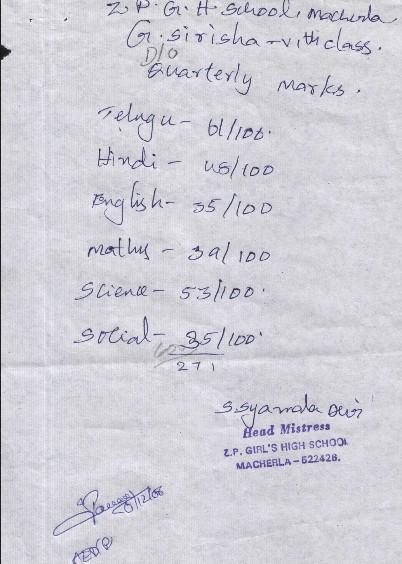 Z. P. G. H. School, Macherla
G. Sirisha - VIth class.
D/O
Quarterly marks.
Telugu - 61/100.
Hindi - 48/100
English - 35/100
Maths - 39/100
Science - 53/100.
Social - 35/100.
271
S. Syamala Devi
Head Mistress
Z.P. GIRL'S HIGH SCHOOL
MACHERLA - 522426.